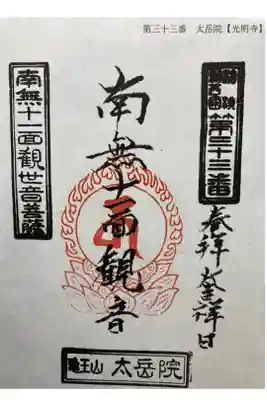 第三十三番　太岳院【光明寺】
第三十三番
奉拝 登拝日
南無十一面観音
南無十一面觀世音菩薩
亀王山 太岳院